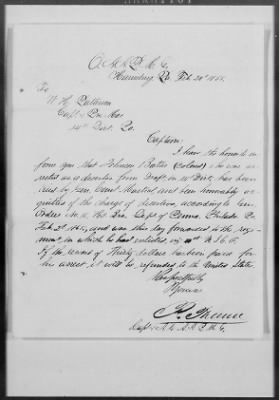 To
Capt & Pro. Mar
14th Dist. Pa.
Captain:
I have the honor to
from you that Johnson Butler (Colored) who was ar-
rested as a deserter from Draft, in Dist. has been
tried by Gen. Court Martial and been honorably ac-
quitted of the charge of desertion, according to Gen.
Orders No. Hd. Qrs. Dept of Penna. Philada Pa
Feb. 21 1865, and was this day forwarded to the regi-
ment, in which he has enlisted,
If the reward of Thirty dollars has been paid for
his arrest, it will be refunded to the United States
Respectfully
Yours